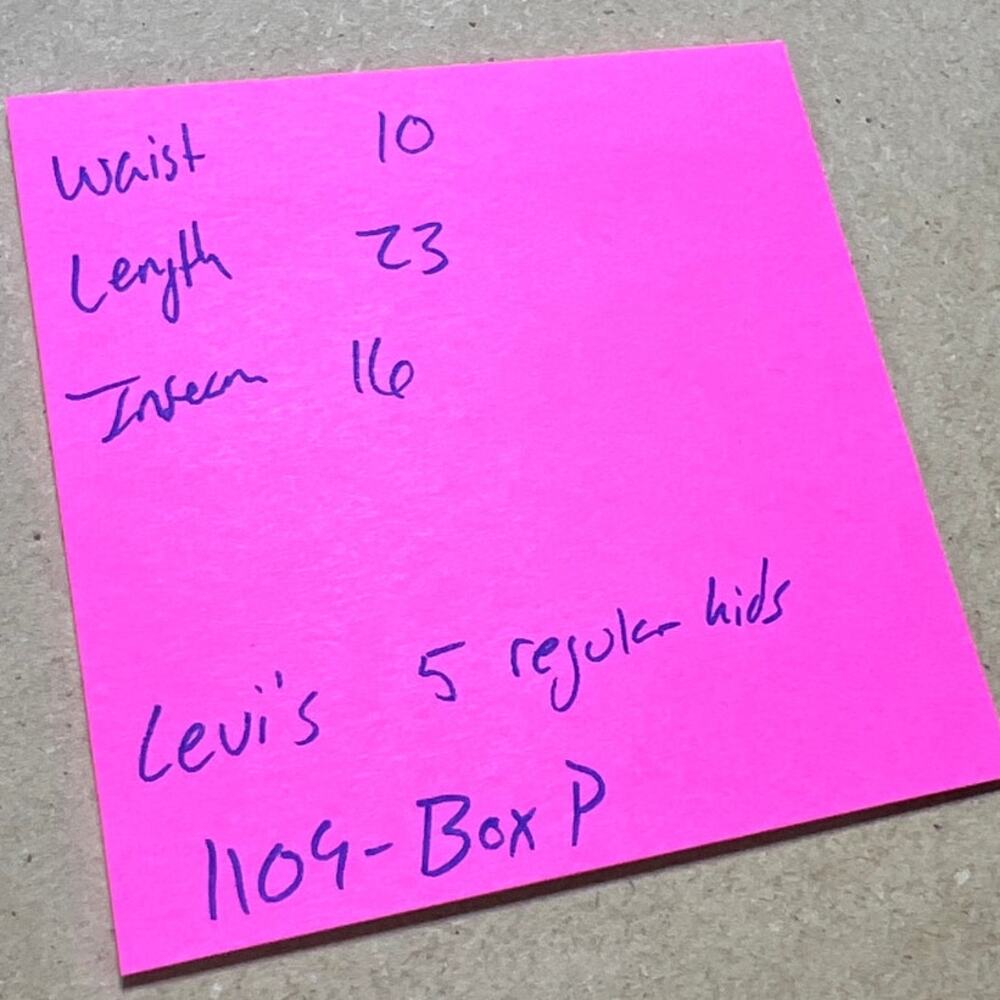 Waist 10
Length 23
Inseam 16
Levi's 5 regular kids
1109-Box P